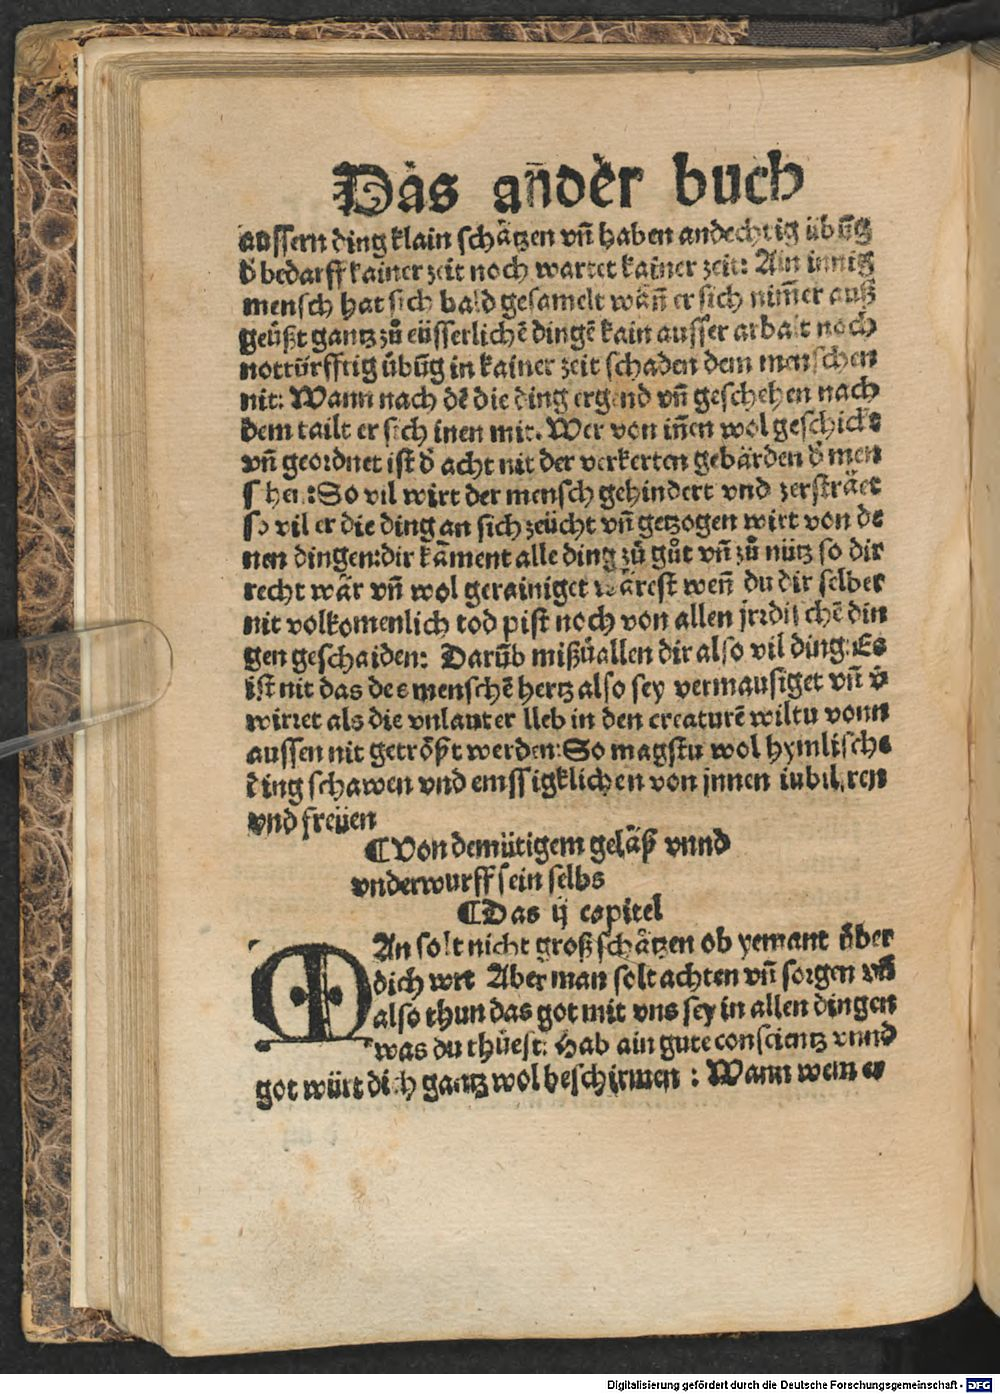 Das añder buch
aussern ding klain schätzen vñ haben andechtig übũg
d̕ bedarff kainer zeit noch wartet kainer zeit: Ain innig
mensch hat sich bald gesamelt wãñ er sich nim̃er auß
geüßt gantz zů eüsserlichẽ dingẽ kain ausser arbait noch
notturfftig übũg in kainer zeit schaden dem menschen
nit: Wann nach dẽ die ding ergend vñ geschehen nach
dem tailt er sich inen mit. Wer von iñen wol geschickt
vñ geordnet ist d̕ acht nit der verkerten gebärden d̕ men
schen: So vil wirt der mensch gehindert vnd zersträet
so vil er die ding an sich zeücht vñ getzogen wirt von de
nen dingen: dir käment alle ding zů gůt vñ zů nütz so dir
recht wär vñ wol gerainiget wärest weñ du dir selber
nit volkomenlich tod pist noch von allen jrdischẽ din
gen geschaiden: Darũb mißuallen dir also vil ding: Es
ist nit das des menschẽ hertz also sey vermausiget vñ v̕
wirret als die vnlauter lieb in den creaturẽ wiltu vonn
aussen nit getröst werden: So magstu wol hymlische
ding schawen vnd emssigklichen von jnnen iubiliren
vnd freüen
¶ Von demütigem geläß vnnd
vnderwurff sein selbs
¶ Das ij capitel
MAn solt nicht groß schätzen ob yemant über
dich wrt Aber man solt achten vñ sorgen vñ
also thun das got mit vns sey in allen dingen
was du thüest: Hab ain gute conscientz vnnd
got würt dich gantz wol beschirmen: Wann wem er
Digitalisierung gefördert durch die Deutsche Forschungsgemeinschaft - DFG